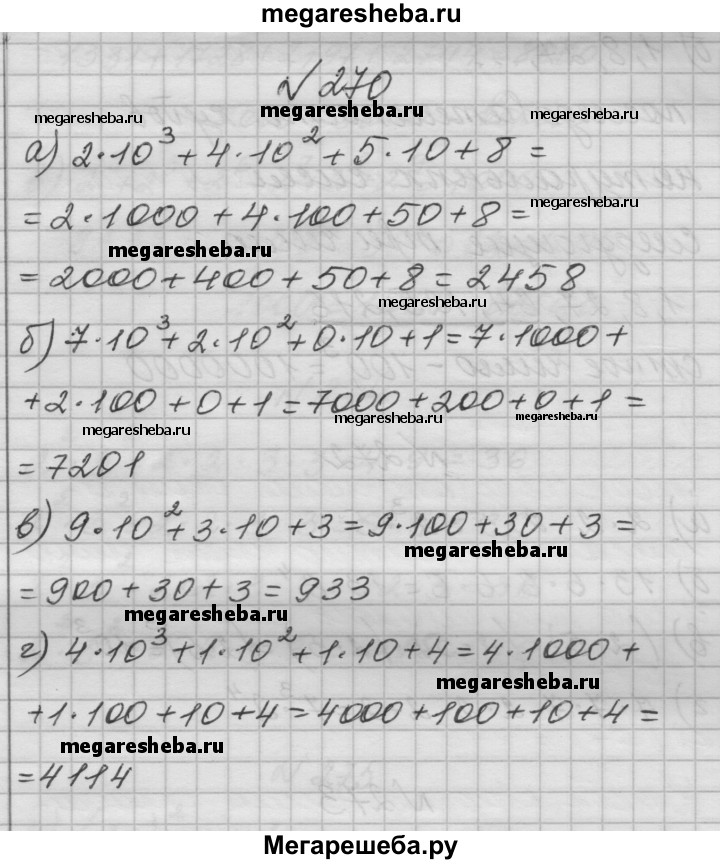 megaresheba.ru
№270
megaresheba.ru megaresheba.ru megaresheba.ru
а) 2·10³+4·10²+5·10+8=
megaresheba.ru
=2·1000+4·100+50+8=
megaresheba.ru
=2000+400+50+8=2458
megaresheba.ru
б) 7·10³+2·10²+0·10+1=7·1000+
+2·100+0+1=7000+200+0+1=
megaresheba.ru megaresheba.ru megaresheba.ru
=7201
в) 9·10²+3·10+3=9·100+30+3=
megaresheba.ru
=900+30+3=933
megaresheba.ru
г) 4·10³+1·10²+1·10+4=4·1000+
megaresheba.ru
+1·100+10+4=4000+100+10+4=
megaresheba.ru
=4114
Мегарешеба.ру